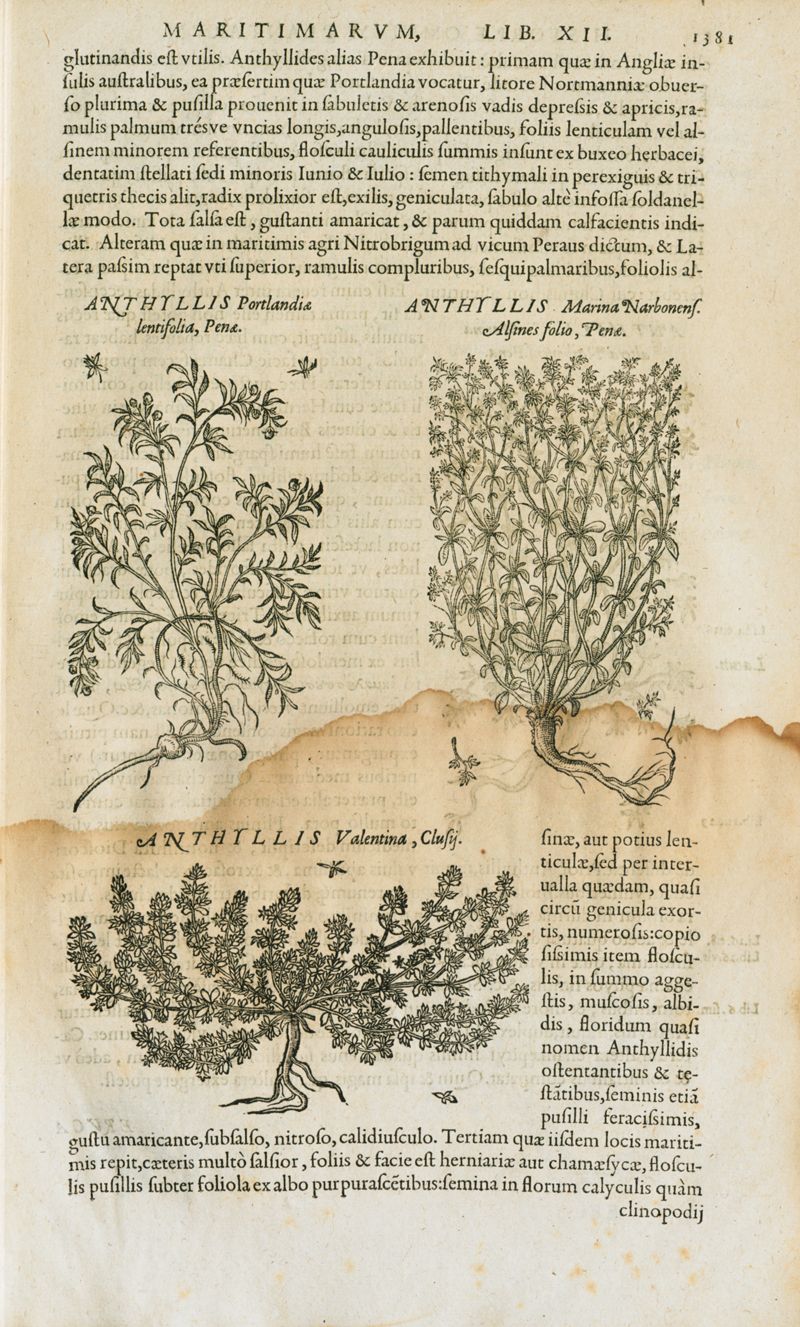 MARITIMARVM, LIB. XII. 1381
glutinandis eſt vtilis. Anthyllides alias Pena exhibuit: primam quæ in Angliæ in-
ſulis auſtralibus, ea præſertim quæ Portlandia vocatur, litore Nortmanniæ obuer-
ſo plurima & puſilla prouenit in ſabuletis & arenoſis vadis depreſsis & apricis, ra-
mulis palmum trésve vncias longis, anguloſis, pallentibus, foliis lenticulam vel al-
ſinem minorem referentibus, floſculi cauliculis ſummis inſunt ex buxeo herbacei,
dentatim ſtellati ſedi minoris Iunio & Iulio: ſemen tithymali in perexiguis & tri-
quetris thecis alit, radix prolixior eſt, exilis, geniculata, ſabulo altè infoſſa ſoldanel-
læ modo. Tota ſalſa eſt, guſtanti amaricat, & parum quiddam calfacientis indi-
cat. Alteram quæ in maritimis agri Nitrobrigum ad vicum Peraus dictum, & La-
tera paſsim reptat vti ſuperior, ramulis compluribus, ſeſquipalmaribus, foliolis al-
ANTHYLLIS Portlandiæ
lentifolia, Penæ.
ANTHYLLIS Marina Narbonenſ.
Alſines folio, Penæ.
ANTHYLLIS Valentina, Cluſij.
ſinæ, aut potius len-
ticulæ, ſed per inter-
ualla quædam, quaſi
circũ genicula exor-
tis, numeroſis: copio
ſiſsimis item floſcu-
lis, in ſummo agge-
ſtis, muſcoſis, albi-
dis, floridum quaſi
nomen Anthyllidis
oſtentantibus & tę-
ſtãtibus, ſeminis etiã
puſilli feraciſsimis,
guſtu amaricante, ſubſalſo, nitroſo, calidiuſculo. Tertiam quæ iiſdem locis mariti-
mis repit, cæteris multò ſalſior, foliis & facie eſt herniariæ aut chamæſycæ, floſcu-
lis puſillis ſubter foliola ex albo purpuraſcẽtibus: ſemina in florum calyculis quàm
clinopodij